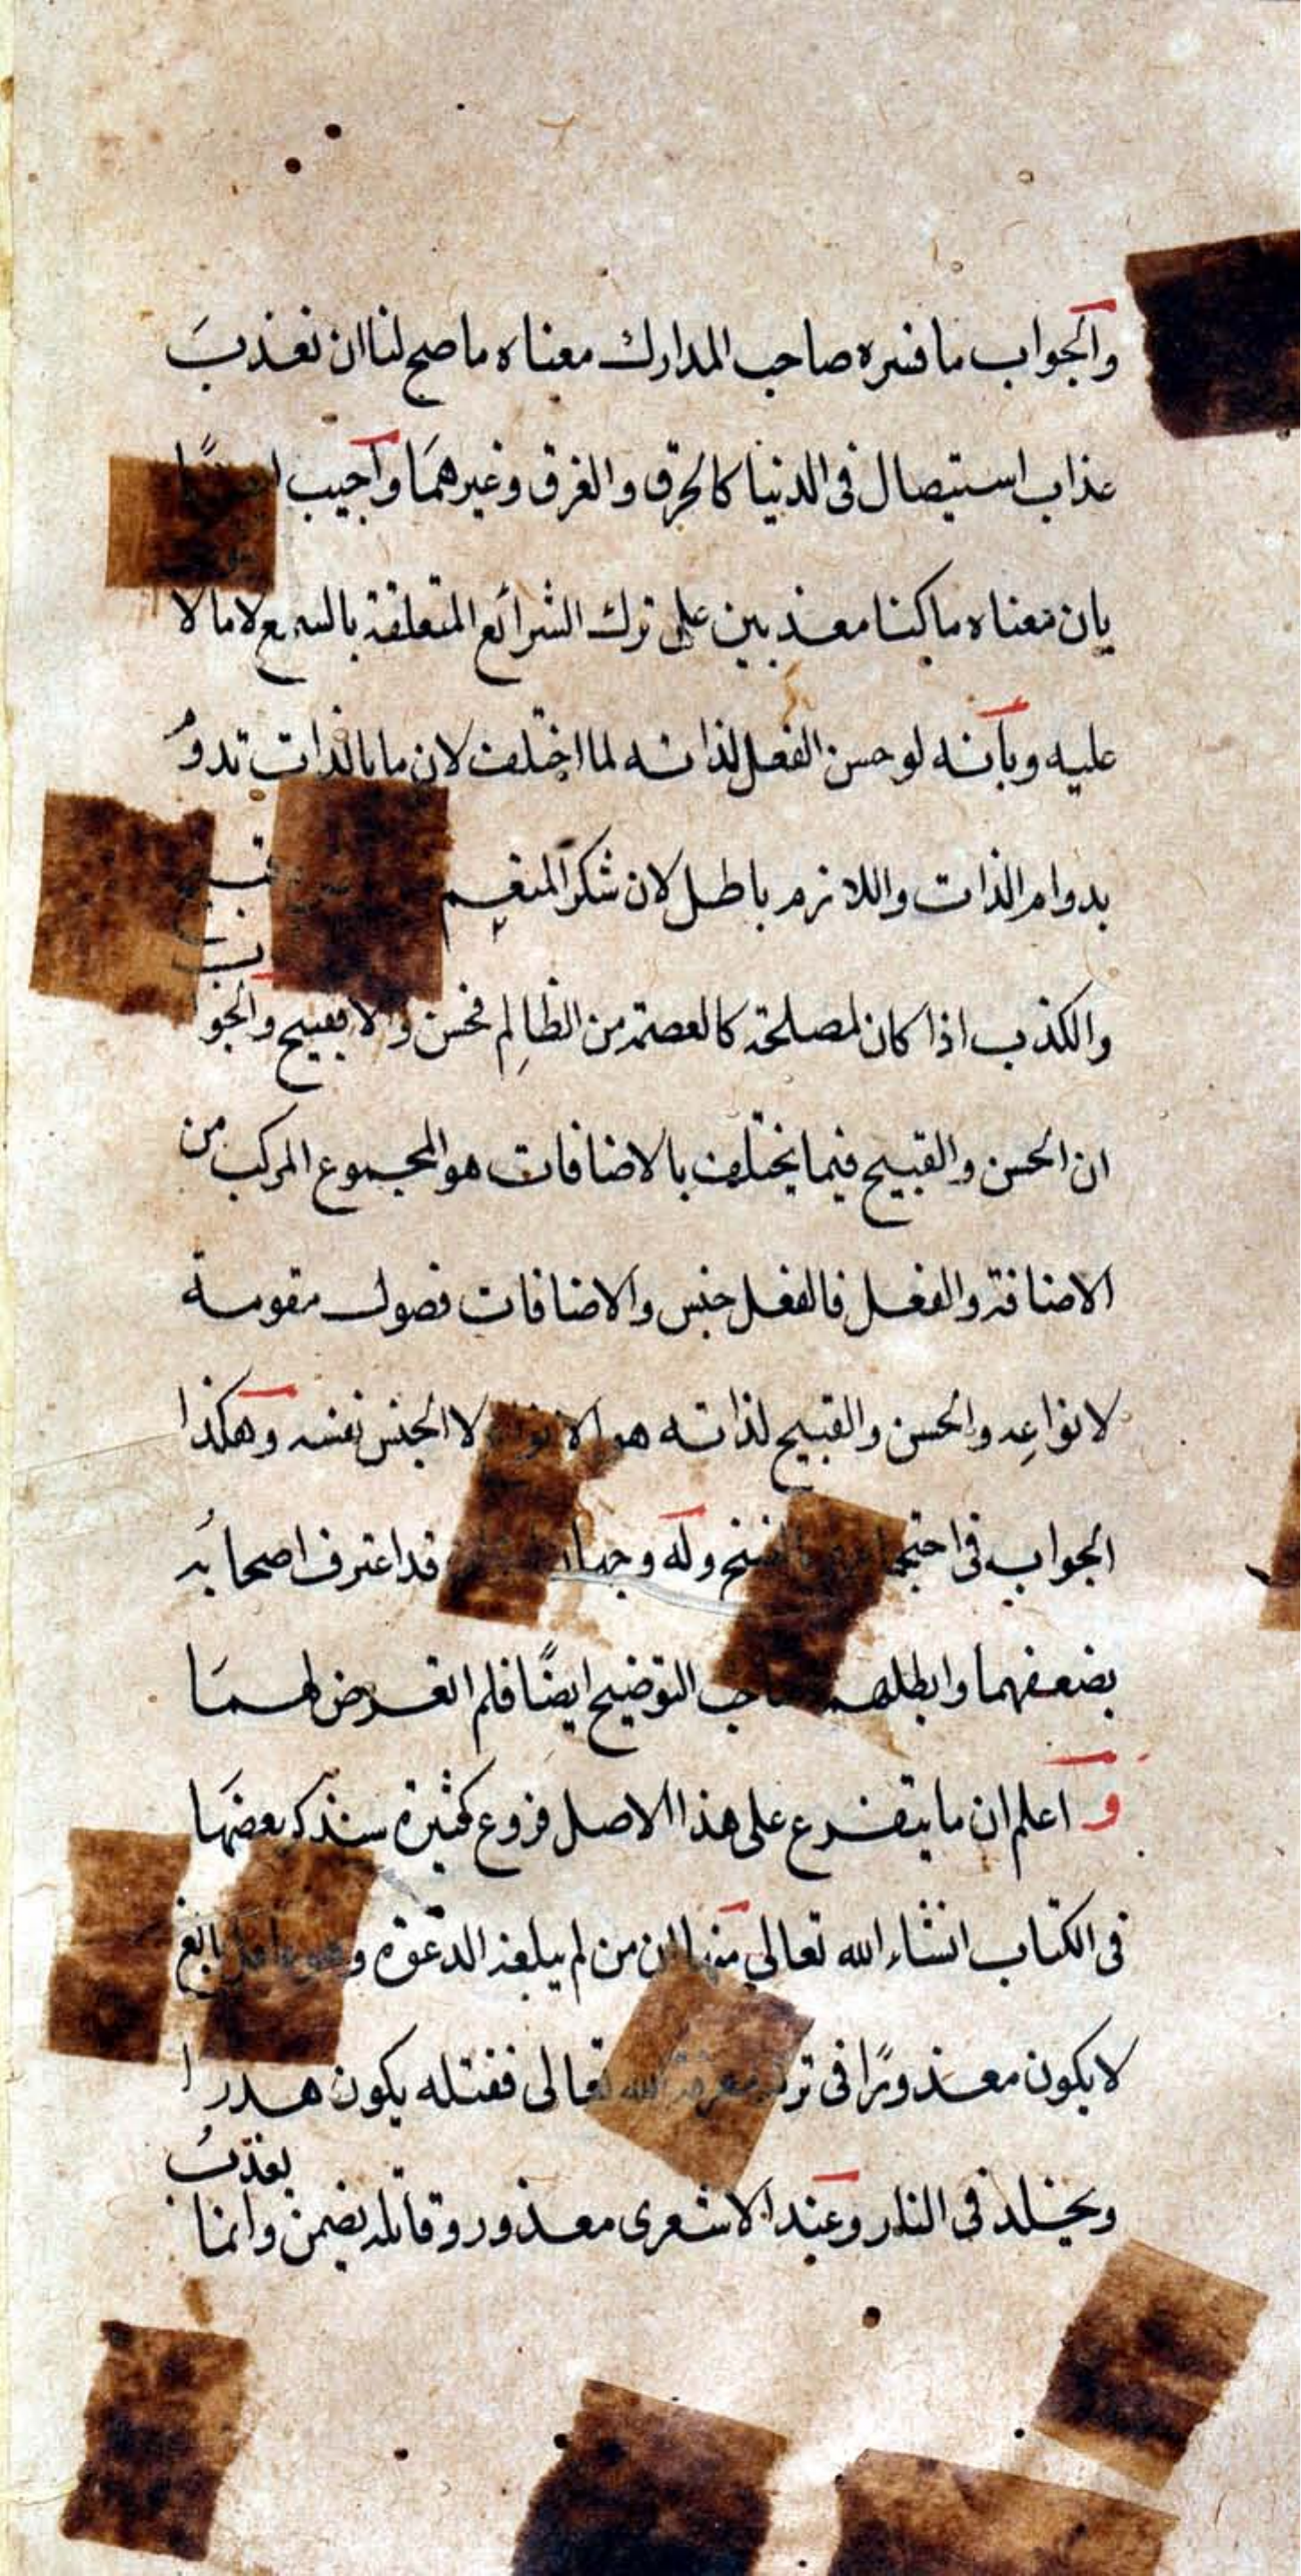 والجواب ما فسره صاحب المدارك معناه ما صح لنا ان نعذب
عذاب استيصال فى الدنيا كالحرق والغرق وغيرهما واجيب ايضًا
بان معناه ما كنا معذبين على ترك الشرائع المتعلقة بالسمع لا ما لا
عليه وبانه لو حسن الفعل لذاته لما اختلف لان ما بالذات تدوم
بدوام الذات واللازم باطل لان شكر المنعم
والكذب اذا كان لمصلحة كالعصمة من الظالم فحسن والا فقبيح والجواب
ان الحسن والقبيح فيما يختلف بالاضافات هو المجموع المركب من
الاضافة والفعل فالفعل جنس والاضافات فصول مقومة
لانواعه والحسن والقبيح لذاته هو الانواع لا الجنس نفسه وهكذا
الجواب فى بالنسخ وله وجهان قد اعترف اصحابه
بضعفهما وابطلهما صاحب التوضيح ايضًا فلم اتعرض لهما
و اعلم ان ما يتفرع على هذا الاصل فروع كثيرة سنذكر بعضها
فى الكتاب انشاء الله تعالى منها ان من لم يبلغه الدعوة وهو عاقل بالغ
لا يكون معذورًا فى ترك معرفة الله تعالى فقتله يكون هدرا
ويخلد فى النار وعند الاشعرى معذور وقاتله يضمن وانما يعذب